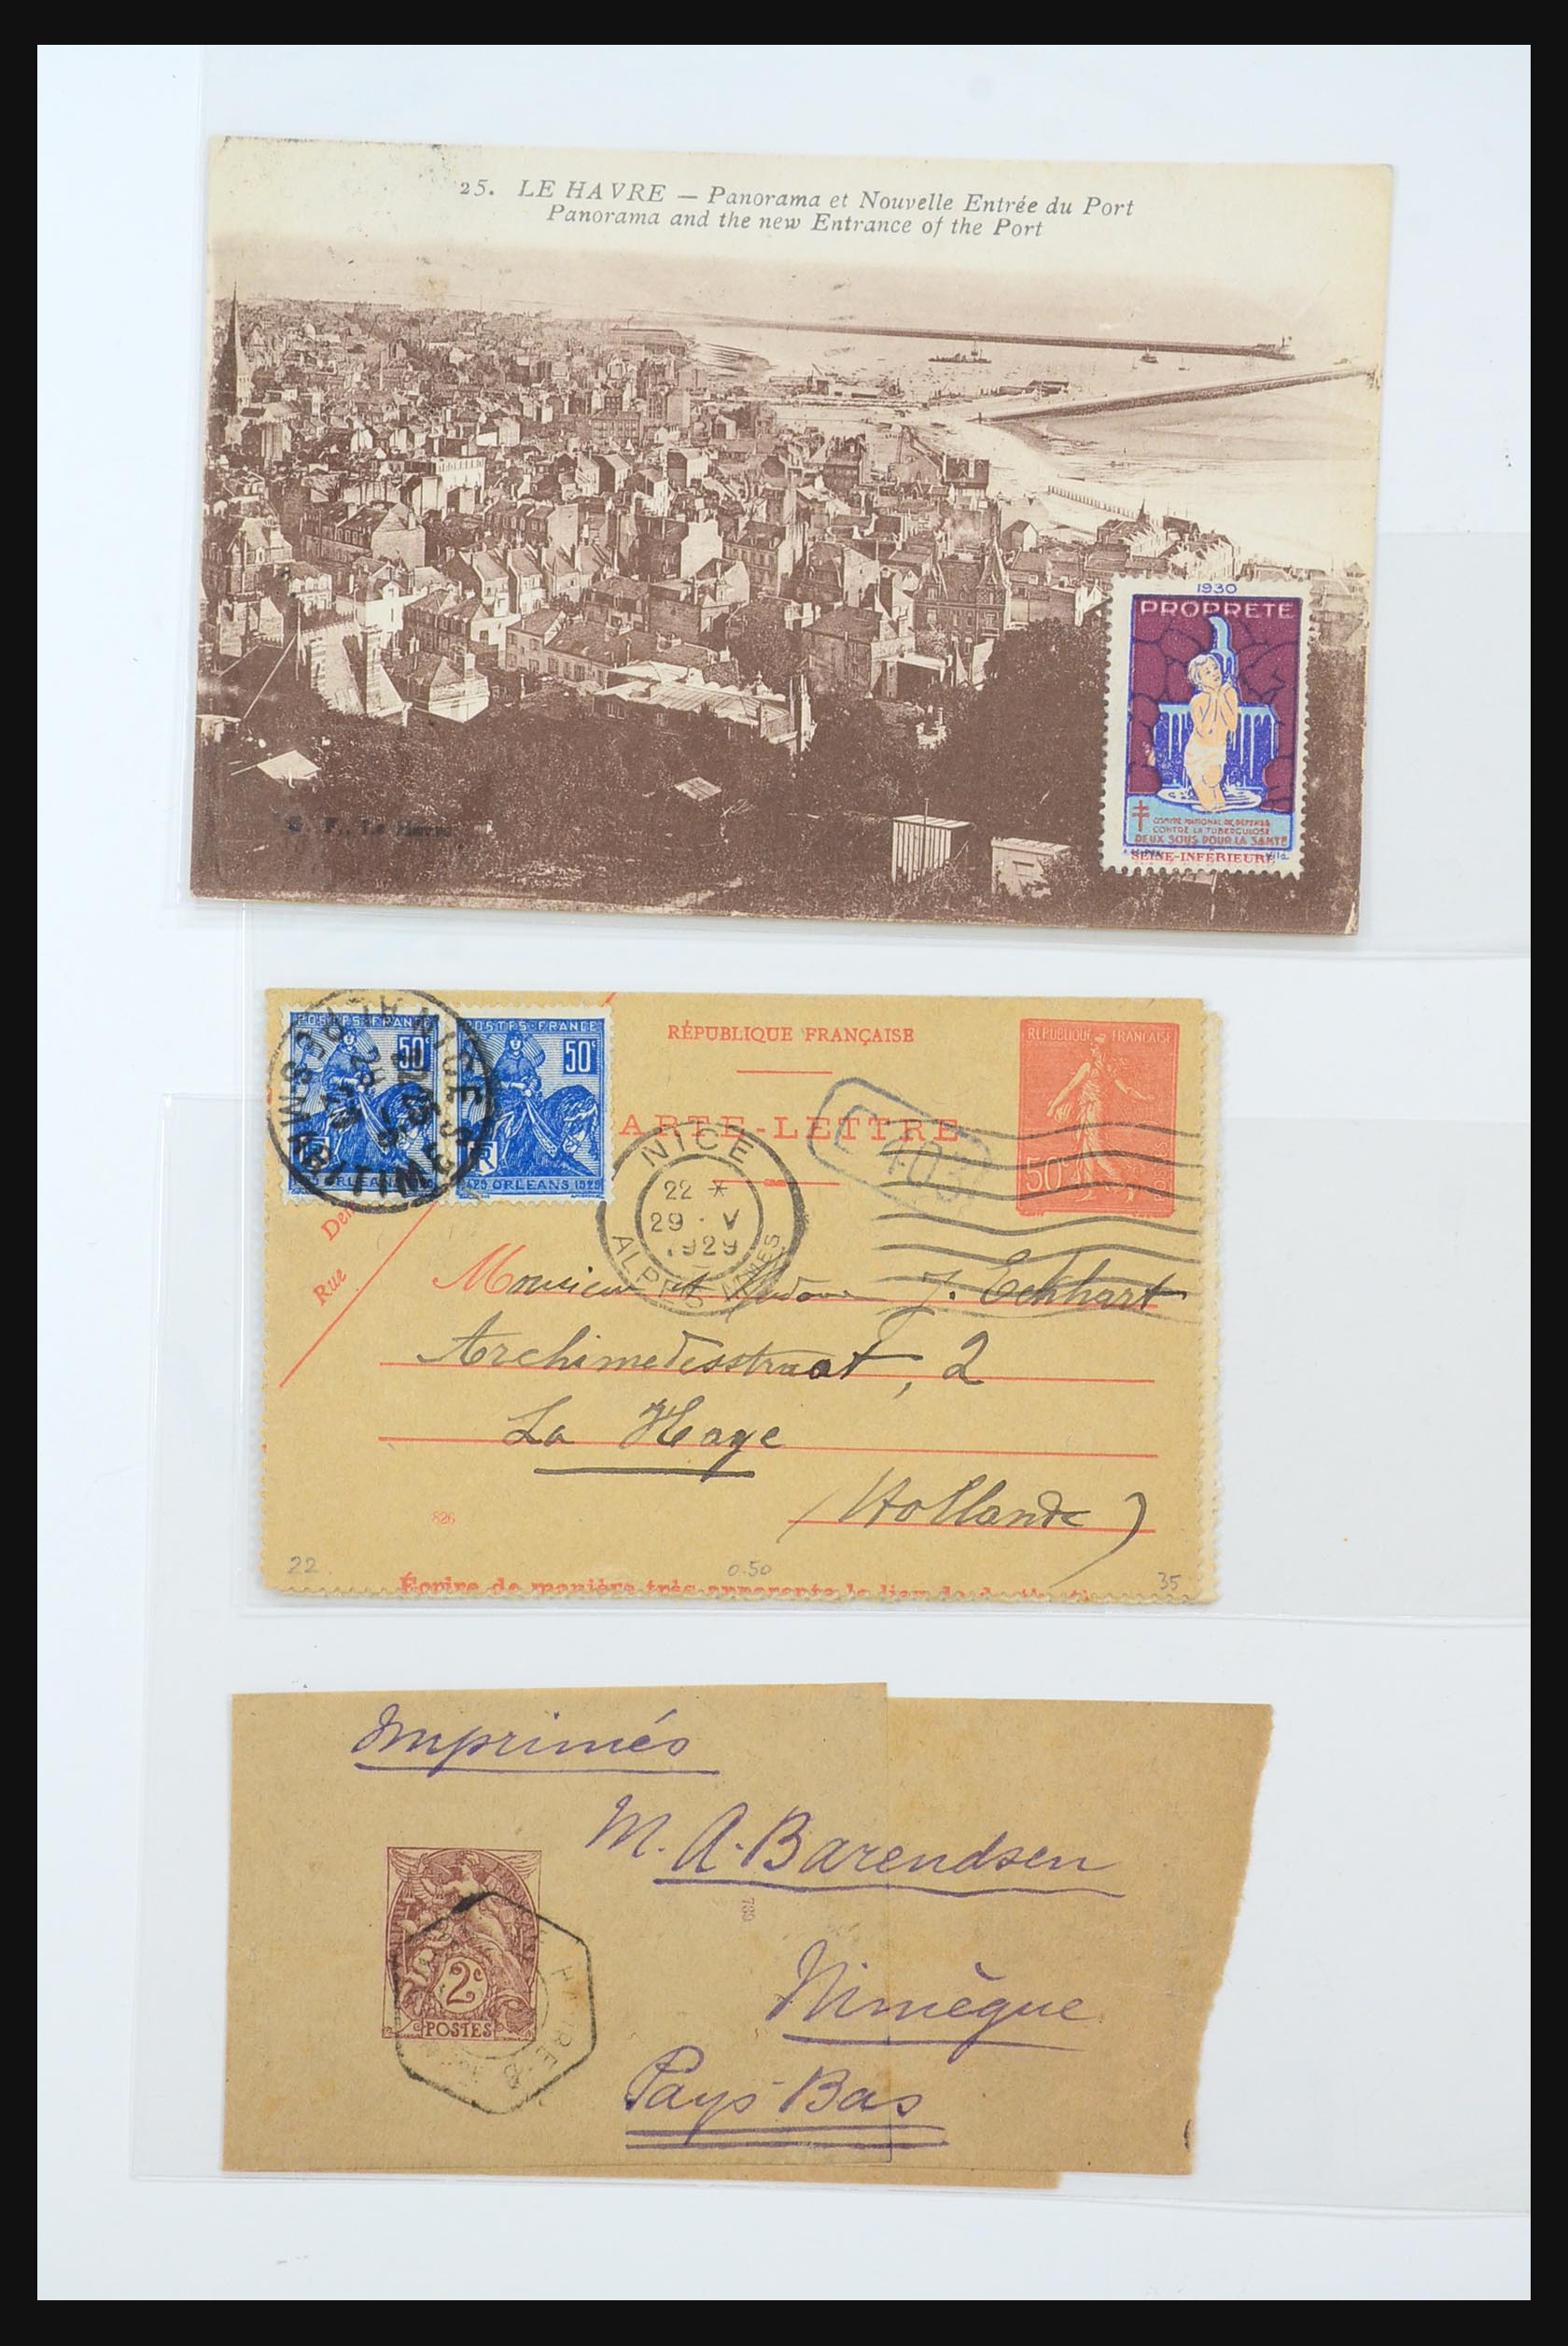 25. LE HAVRE — Panorama et Nouvelle Entrée du Port
Panorama and the new Entrance of the Port
1930
PROPRETE
COMITÉ NATIONAL DE DÉFENSE
CONTRE LA TUBERCULOSE
DEUX SOUS POUR LA SANTÉ
SEINE-INFÉRIEURE
POSTES-FRANCE
50c
POSTES-FRANCE
50c
ORLEANS
1429 ORLEANS 1929
NICE
MARITIMES
RÉPUBLIQUE FRANÇAISE
ARTE-LETTRE
REPUBLIQUE FRANÇAISE
50c
403
NICE
22 *
29 · V
1929
ALPES MMES
Rue
Monsieur et Madame J. Eckhart
Archimedesstraat, 2
La Haye
(Hollande)
826
22
0.50
35
Écrire de manière très apparente le lieu de
Imprimés
M. A. Barendsen
789
Nimègue
Pays-Bas
2c
POSTES